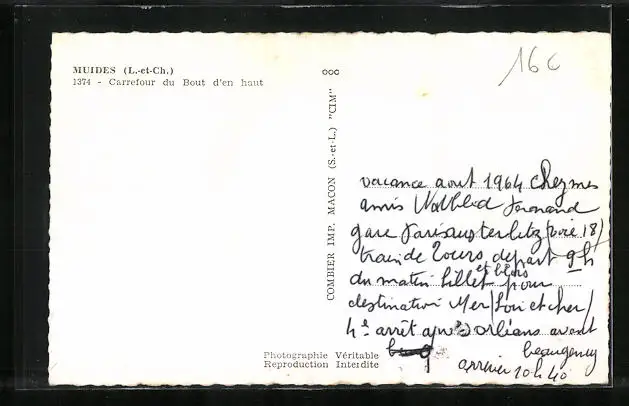 MUIDES (L.-et-Ch.)
1374 - Carrefour du Bout d'en haut
COMBIER IMP. MACON (S.-et-L.) "CIM"
16 c
vacance aout 1964 chez mes
amis Fernand
gare Paris austerlitz (voie 18)
train de Tours depart 9h
et blois
du matin billet pour
destination Mer (Loir et cher)
4e arrêt après orléans avant
beaugency
arriver 10h40
Photographie Véritable
Reproduction Interdite